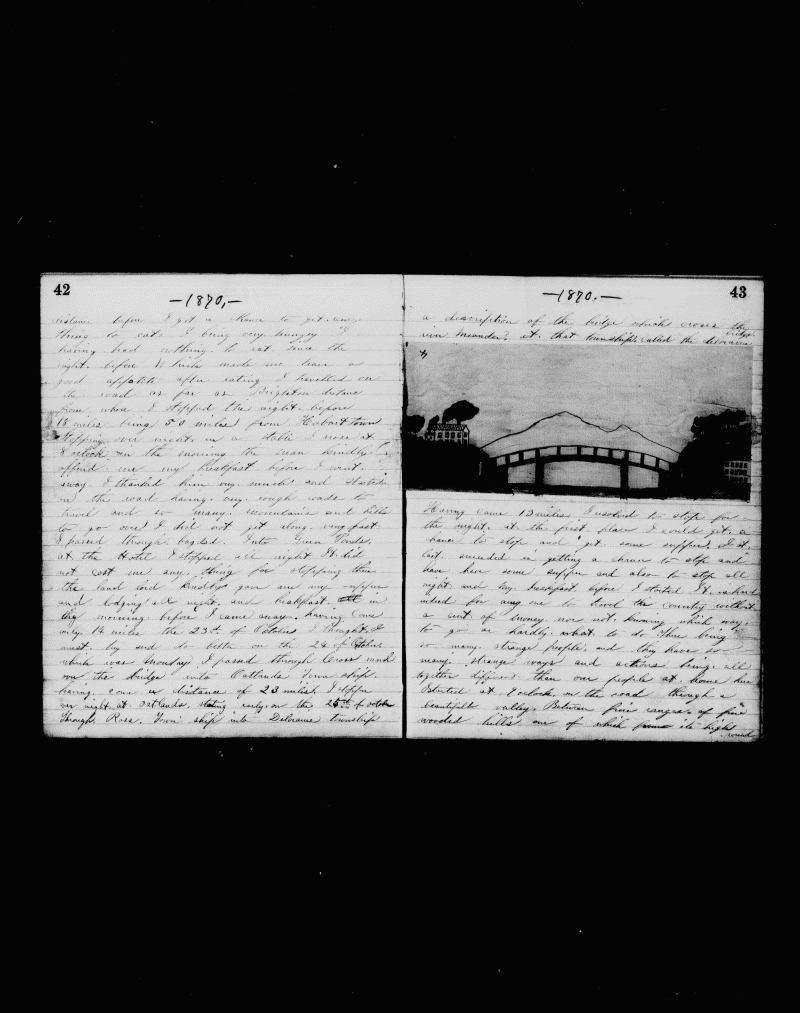 42
-1870,-
distance before I got a chance to get any
thing to eat. I being very hungry I
having had nothing to eat since the
night before which made me have a
good appetite after eating I travelled on
the road as far as Brighton distance
from where I stopped the night before
18 miles being 50 miles from Hobart town
stopping over night in a stable I rose at
8 oclock in the morning the man kindly
offered me my breakfast before I went
away I thanked him very much and started
on the road having very rough roads to
travel and so many mountains and hills
to go over I did not get along very fast
I passed through bagdad. Into Green Ponds.
at the Hotel I stopped all night It did
not cost me any thing for stopping there
the land lord kindly gave me my supper
and lodging all night, and breakfast. in
the morning before I came away. having come
only 14 miles the 23rd of October I thought I
must try and do better on the 24 of October
which was Monday I passed through Cross marsh
over the bridge into Oatlands Town ship.
having come a distance of 23 miles, I stopped
over night at Oatlands, starting early on the 25th of october
through Ross. Town ship into Deloraine township
43
-1870.-
a description of the bridge which crosses the
river meander, at that township called the deloraine
bridge
Having come 13 miles I resolved to stop for
the night, at the first place I could get a
chance to stop and get some supper. I at
last suceeded in getting a chance to stop and
have some supper and also to stop all
night and my breakfast before I started It is hard
indeed for any one to travel the country without
a cent of money nor not knowing which way
to go or hardly what to do There being
so many strange people, and they have so
many strange ways and actions being all
together different then our people at home
I started at 9 oclock on the road through a
beautifull valley. Between fine ranges of fine
wooded hills one of which from its hight